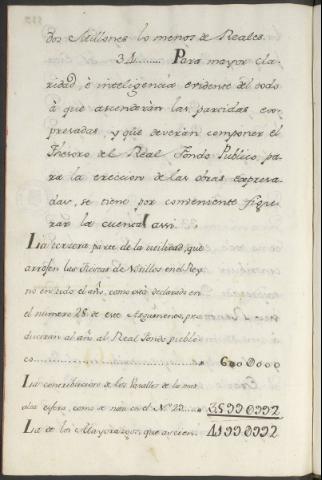 dos Millones lo menos de Reales.
34....... Para mayor cla-
ridad, è inteligencia evidente del todo
à que ascenderàn las partidas ex-
presadas, y que deveràn componer el
Thesoro del Real Fondo Publico pa-
ra la ereccion de las obras expresa-
das, se tiene por conveniente figu-
rar la cuenta assi.
La tercera parte de la utilidad, que
en el Rey-
no en todo el año, como està declarado en
el numero 28 de este pro
duciràn al año al Real fondo publi-
co
La contribucion de los Vasallos de la
esfera, como se vió en el N.º 29
La de los Mayorazgos, que